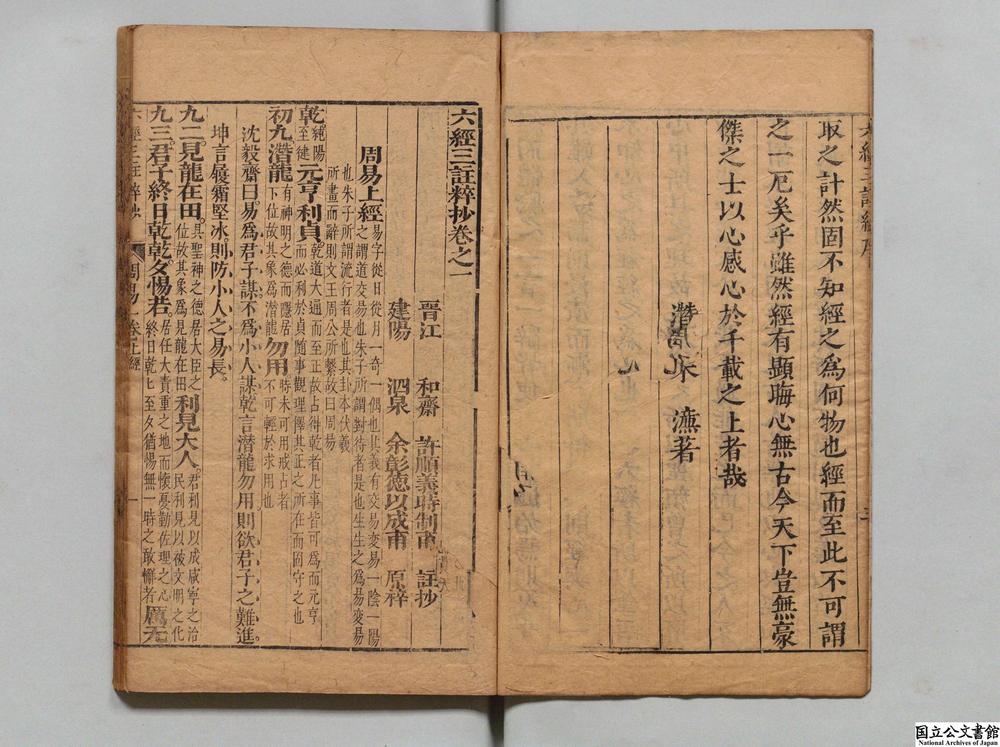 取之計然固不知經之為何物也經而至此不可謂
之一厄矣乎雖然經有顯晦心無古今天下豈無豪
傑之士以心感心於千載之上者哉
六經三註粹抄卷之一
晉江 和齋 許順義時制甫 註抄
建陽 泗泉 余彰德以成甫 原梓
周易上經易字從日從月一奇一偶也其義有交易變易一陰一陽
之謂道交易也朱子所謂對待者是也生生之為易變易
也朱子所謂流行者是也其卦本伏羲
所畫而辭則文王周公所繫故曰周易
乾純陽至健元亨利貞乾道大通而至正故占得乾者凡事皆可為而元亨
而必利於貞隨事觀理擇其正之所在而固守之也
初九潛龍有神明之德而隱居下位故其象為潛龍勿用時未可用戒占者不可輕於求用也
沈毅齋曰易為君子謀不為小人謀乾言潛龍勿用則欲君子之難進
坤言履霜堅冰則防小人之易長
九二見龍在田具聖神之德居大臣之位故其象為見龍在田利見大人君利見以成咸寧之治民利見以被文明之化
九三君子終日乾乾夕惕若居任大責重之地而懷憂勤佐理之心終日乾匕至夕猶惕無一時之敢懈者厲无
周易一卷上經
一
国立公文書館
National Archives of Japan